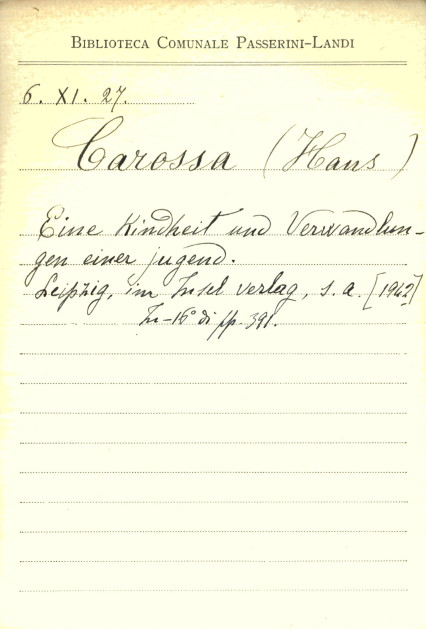 BIBLIOTECA COMUNALE PASSERINI-LANDI
6. XI. 27.
Carossa (Hans)
Eine Kindheit und Verwandlun-
gen einer jugend.
Leipzig, im Insel verlag, s. a. [1942]
In-16° di pp. 391.